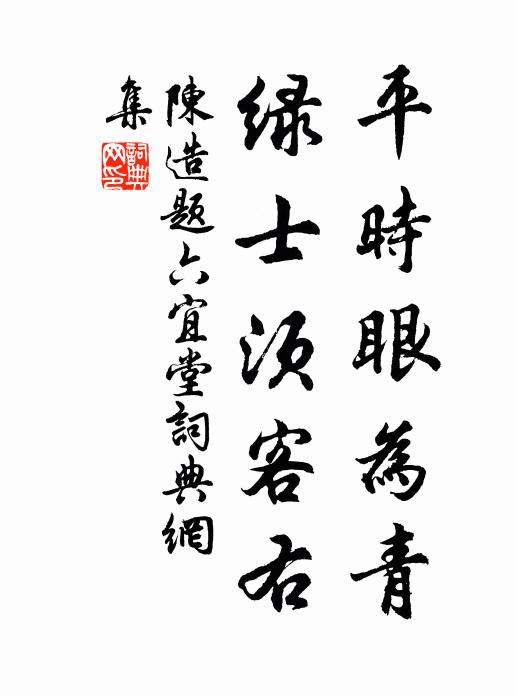 平時眼為青
緑士須客右
陳造題六宜堂詞典網
集
詞典網印